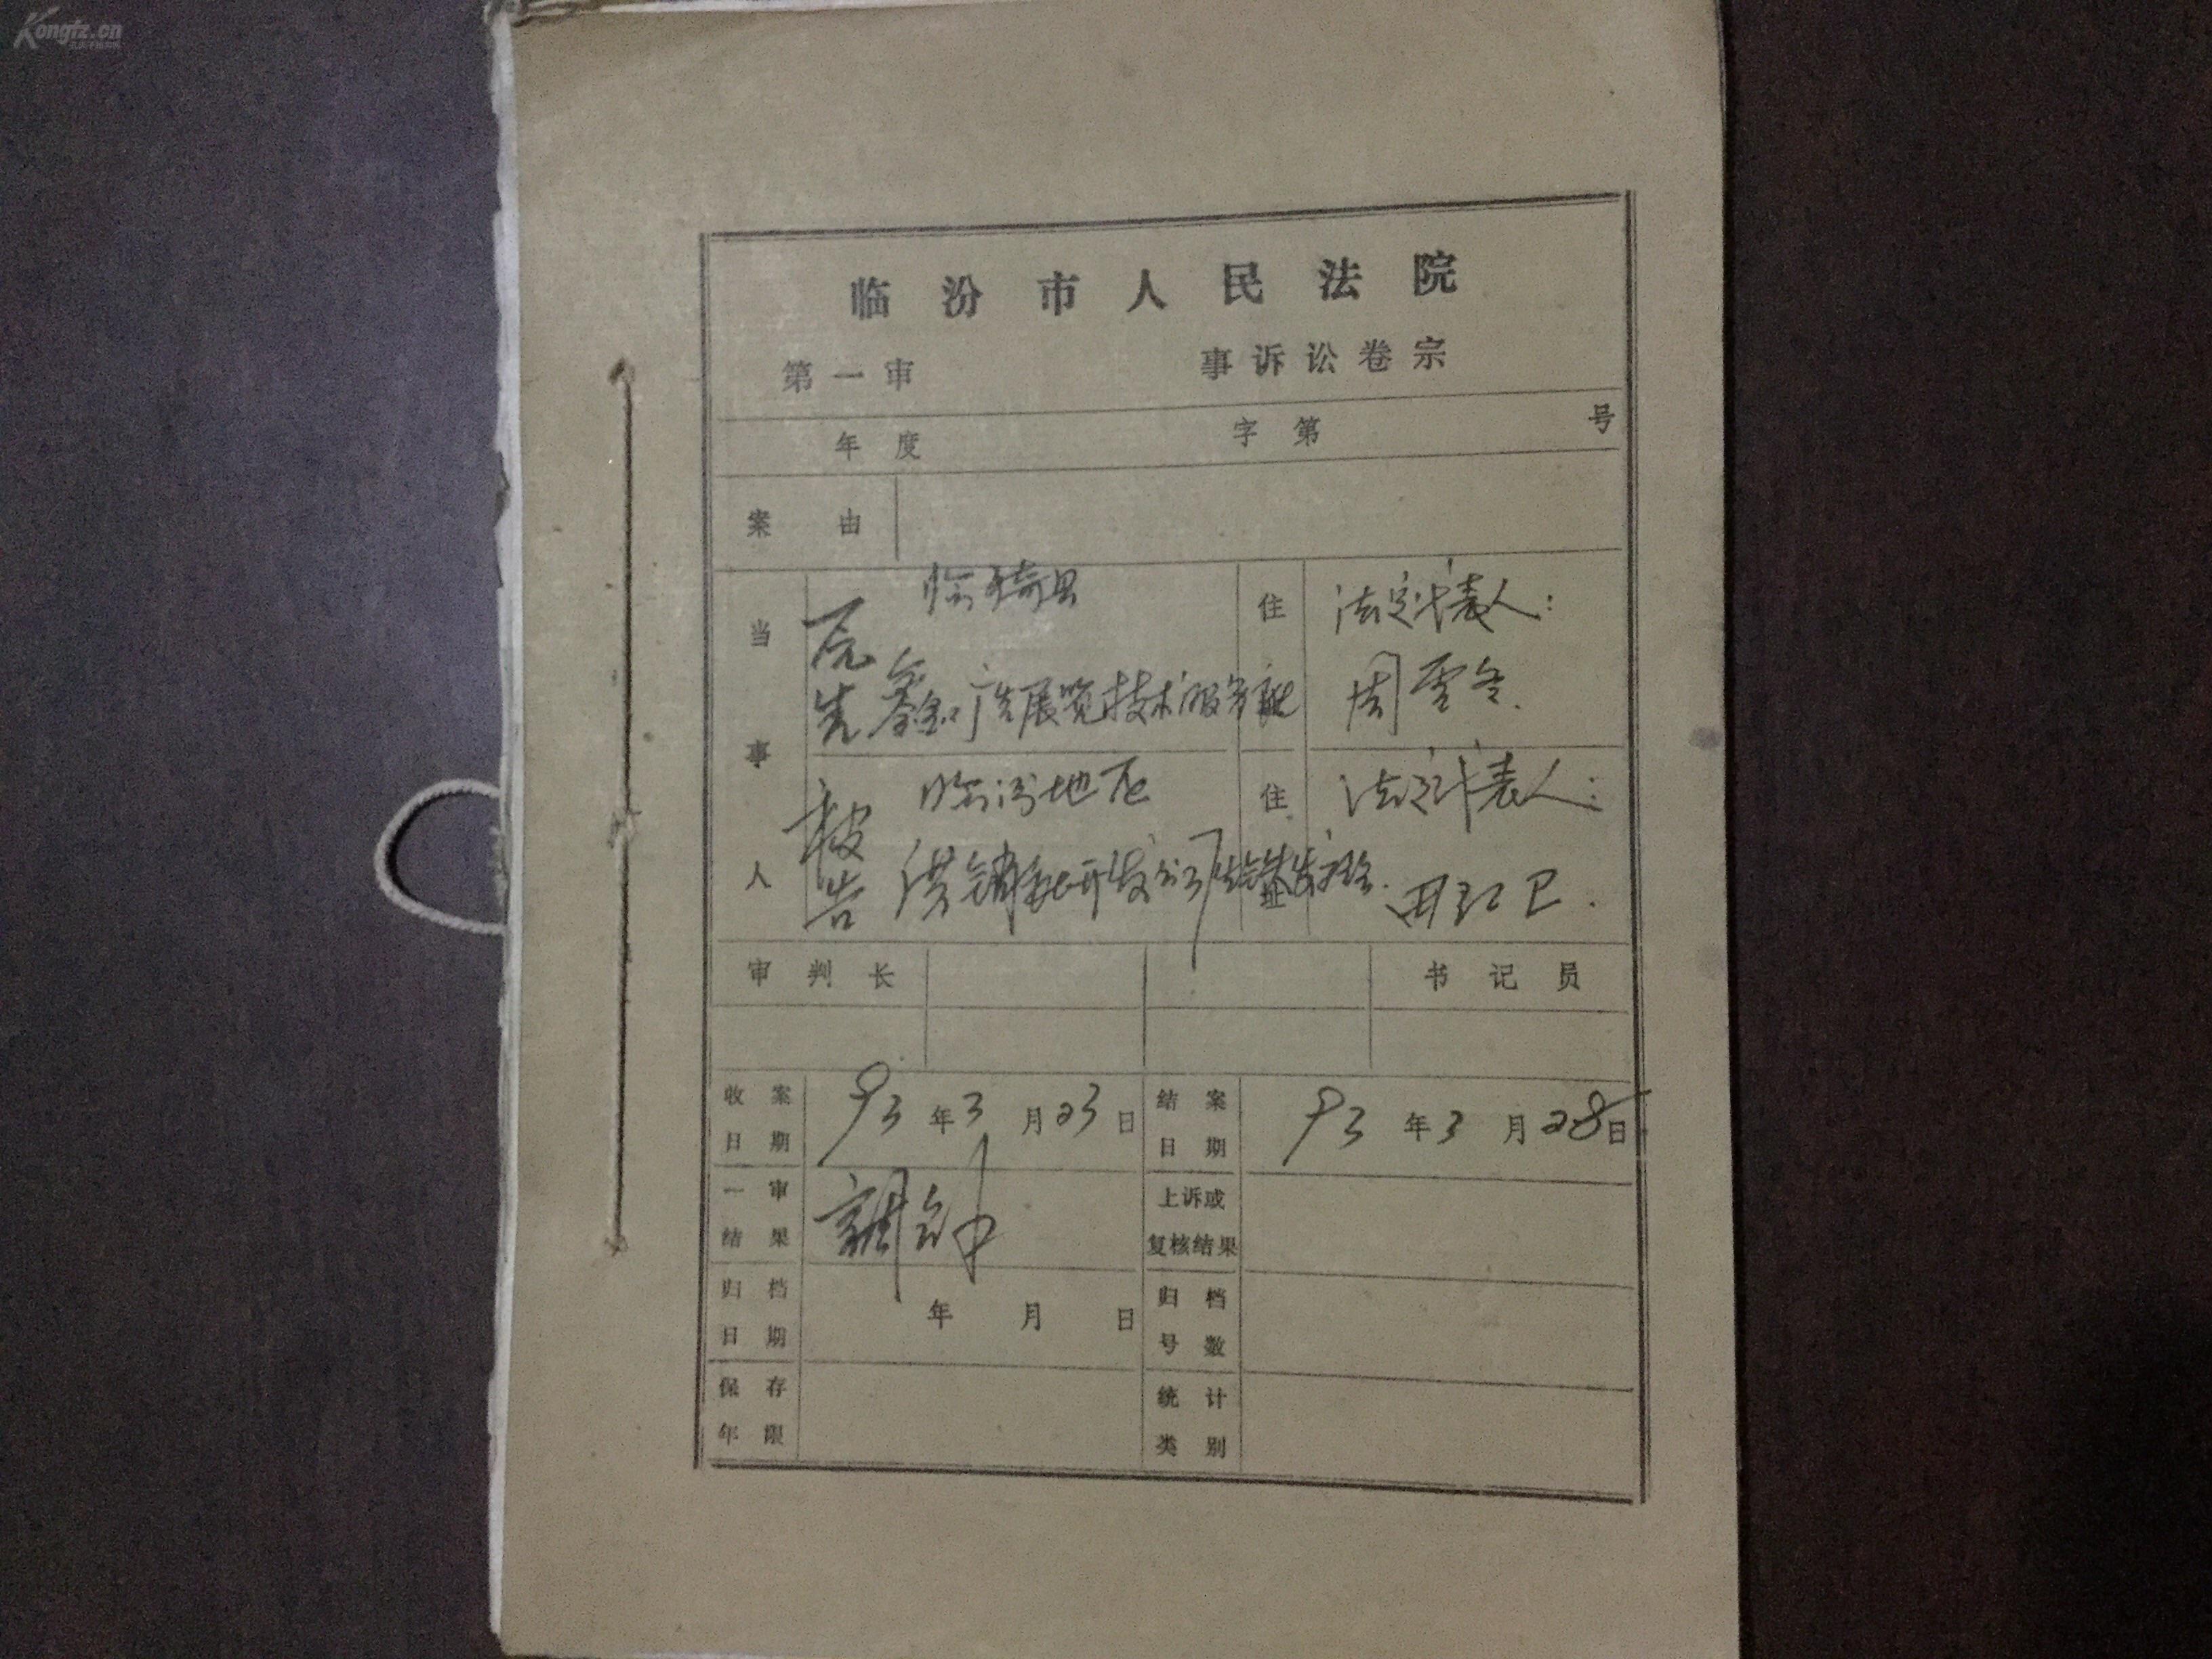 Kongfz.cn
临汾市人民法院
第一审 事诉讼卷宗
年度 字第 号
案由
当事人
原告 临猗县
鑫广告展览技术服务部
住址 法定代表人：
周雪冬.
被告 临汾地区
供销社开发公司
住址 法定代表人：
田卫.
审判长 书记员
收案日期 93年3月23日 结案日期 93年3月28日
一审结果 調解 上诉或复核结果
归档日期 年 月 日 归档号数
保存年限 统计类别